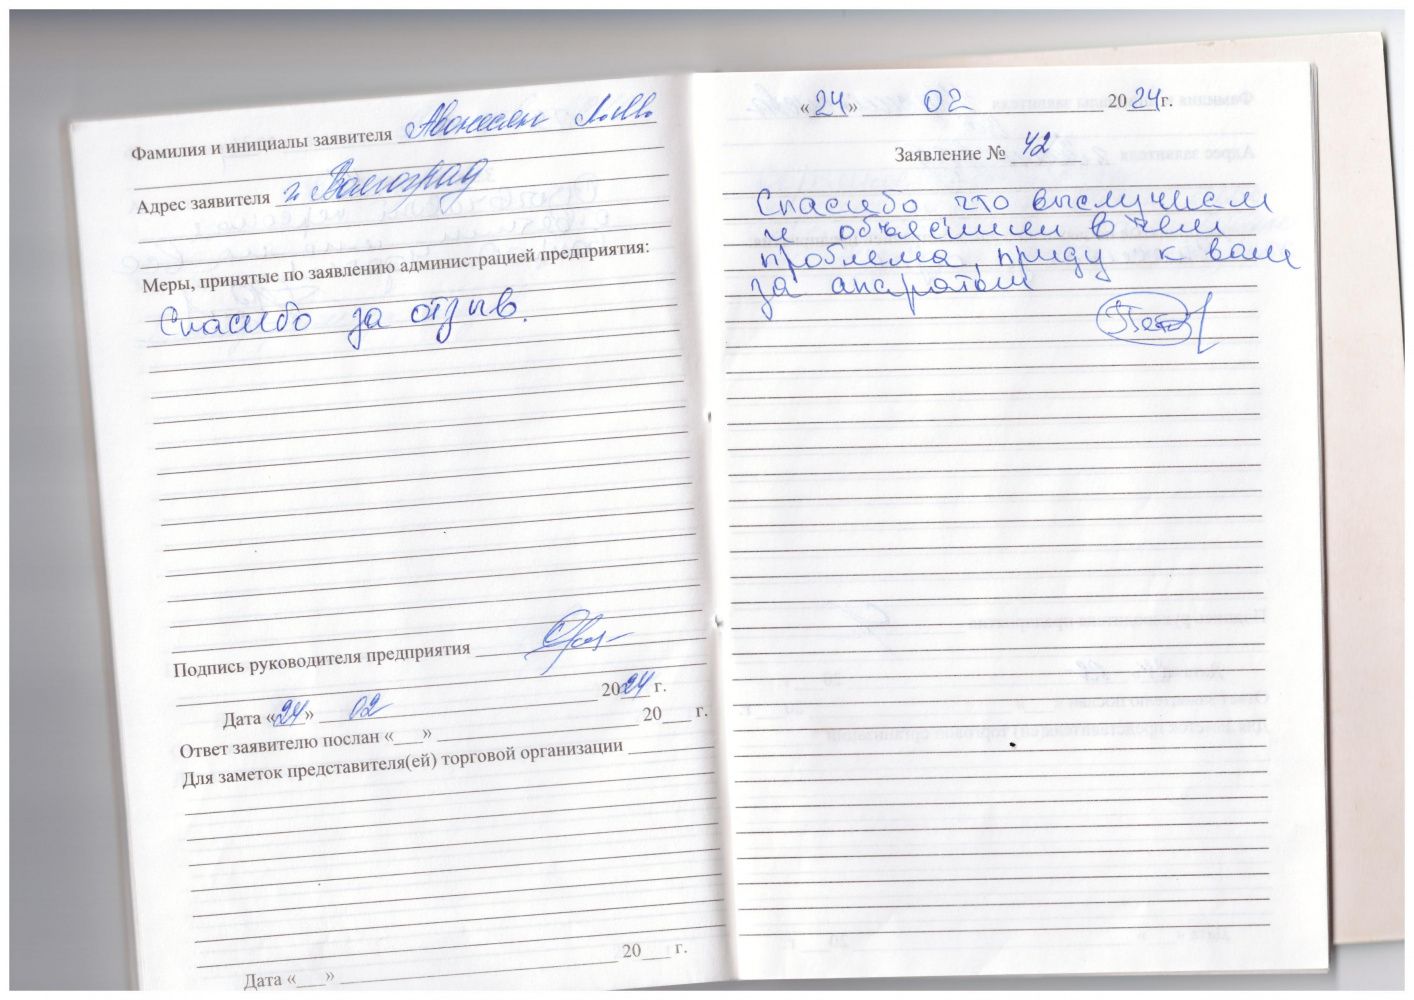 Фамилия и инициалы заявителя
Адрес заявителя г. Волгоград
Меры, принятые по заявлению администрацией предприятия:
Спасибо за отзыв.
Подпись руководителя предприятия
Дата «24» 02 2024 г.
Ответ заявителю послан «___» 20___ г.
Для заметок представителя(ей) торговой организации
Дата «___» 20___ г.
«24» 02 2024г.
Заявление № 42
Спасибо что выслушали
и объяснили в чем
проблема, приду к вам
за апаратом